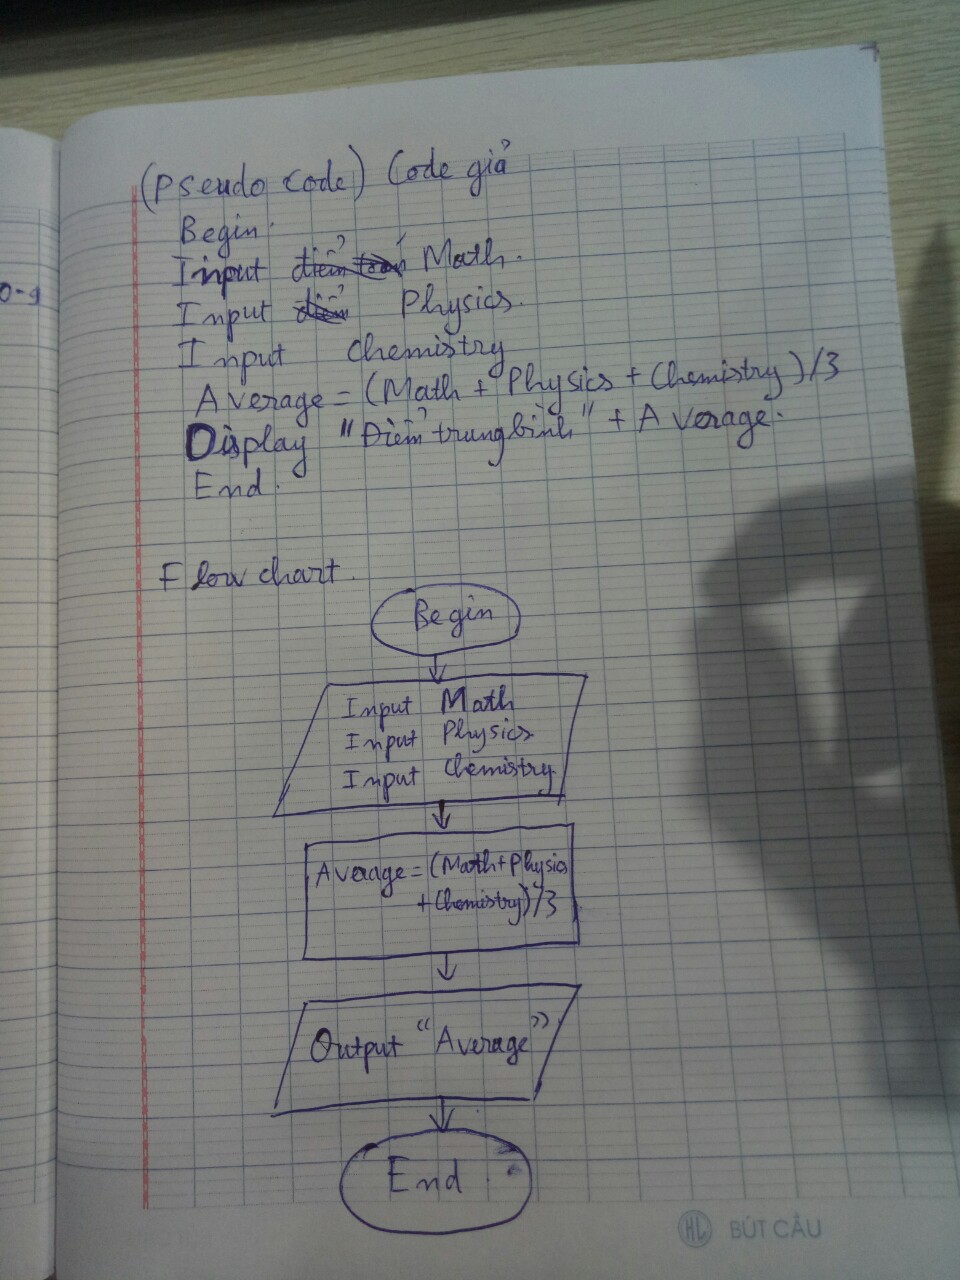 (Pseudo Code) Code giả
Begin.
Input điểm toán Math.
Input điểm Physics.
Input Chemistry
Average = (Math + Physics + Chemistry)/3
Display "Điểm trung bình" + Average.
End.
Flow chart.
Begin
Input Math
Input Physics
Input Chemistry
Average = (Math + Physics
+ Chemistry)/3
Output "Average"
End.
0-9
HL BÚT CÂU